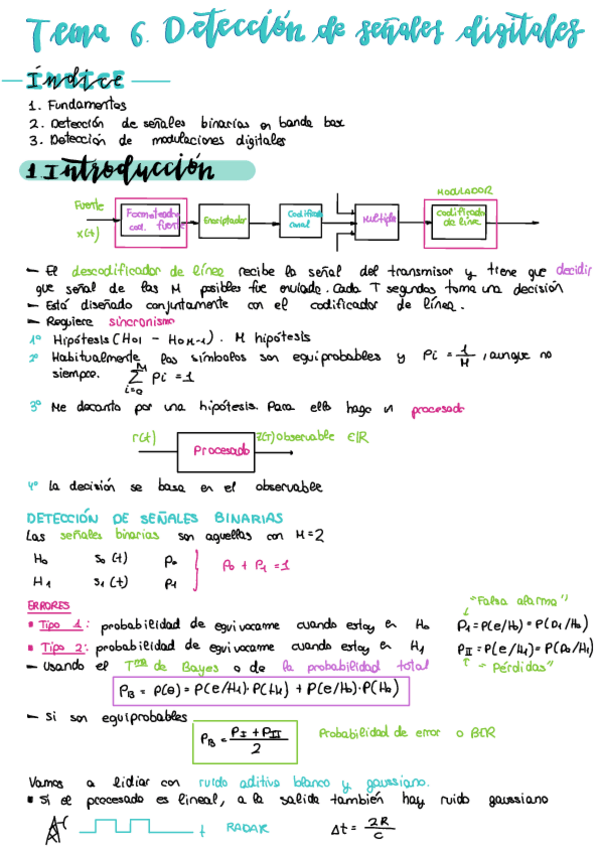 Tema 6. Detección de señales digitales
Índice
1. Fundamentos
2. Detección de señales binarias en banda base
3. Detección de modulaciones digitales
1. Introducción
MODULADOR
Fuente
x(t)
Formateador cod. fuente
Encriptador
Codificad canal
Multiplex
codificador de línea
- El descodificador de línea recibe la señal del transmisor y tiene que decidir
que señal de las M posibles fue enviada. Cada T segundos toma una decisión
- Está diseñado conjuntamente con el codificador de línea.
- Requiere sincronismo
1º Hipótesis (H01 - H0M-1). M hipótesis
2º Habitualmente los símbolos son equiprobables y Pi = 1/M, aunque no
siempre. M Σ i=0 Pi = 1
3º Me decanto por una hipótesis. Para ello hago un procesado
r(t) Procesado z(T) observable ∈ℝ
4º La decisión se basa en el observable
DETECCIÓN DE SEÑALES BINARIAS
Las señales binarias son aquellas con M=2
H0 S0(t) P0
P0 + P1 = 1
H1 S1(t) P1
ERRORES
"Falsa alarma"
• Tipo 1: probabilidad de equivocarme cuando estoy en H0 PI = P(e/H0) = P(D1/H0)
• Tipo 2: probabilidad de equivocarme cuando estoy en H1 PII = P(e/H1) = P(D0/H1)
- Usando el Tma de Bayes o de la probabilidad total "Pérdidas"
PB = P(e) = P(e/H1)·P(H1) + P(e/H0)·P(H0)
- Si son equiprobables
PB = PI + PII / 2 Probabilidad de error o BER
Vamos a lidiar con ruido aditivo blanco y gaussiano.
• Si el procesado es lineal, a la salida también hay ruido gaussiano
t RADAR Δt = 2R/c